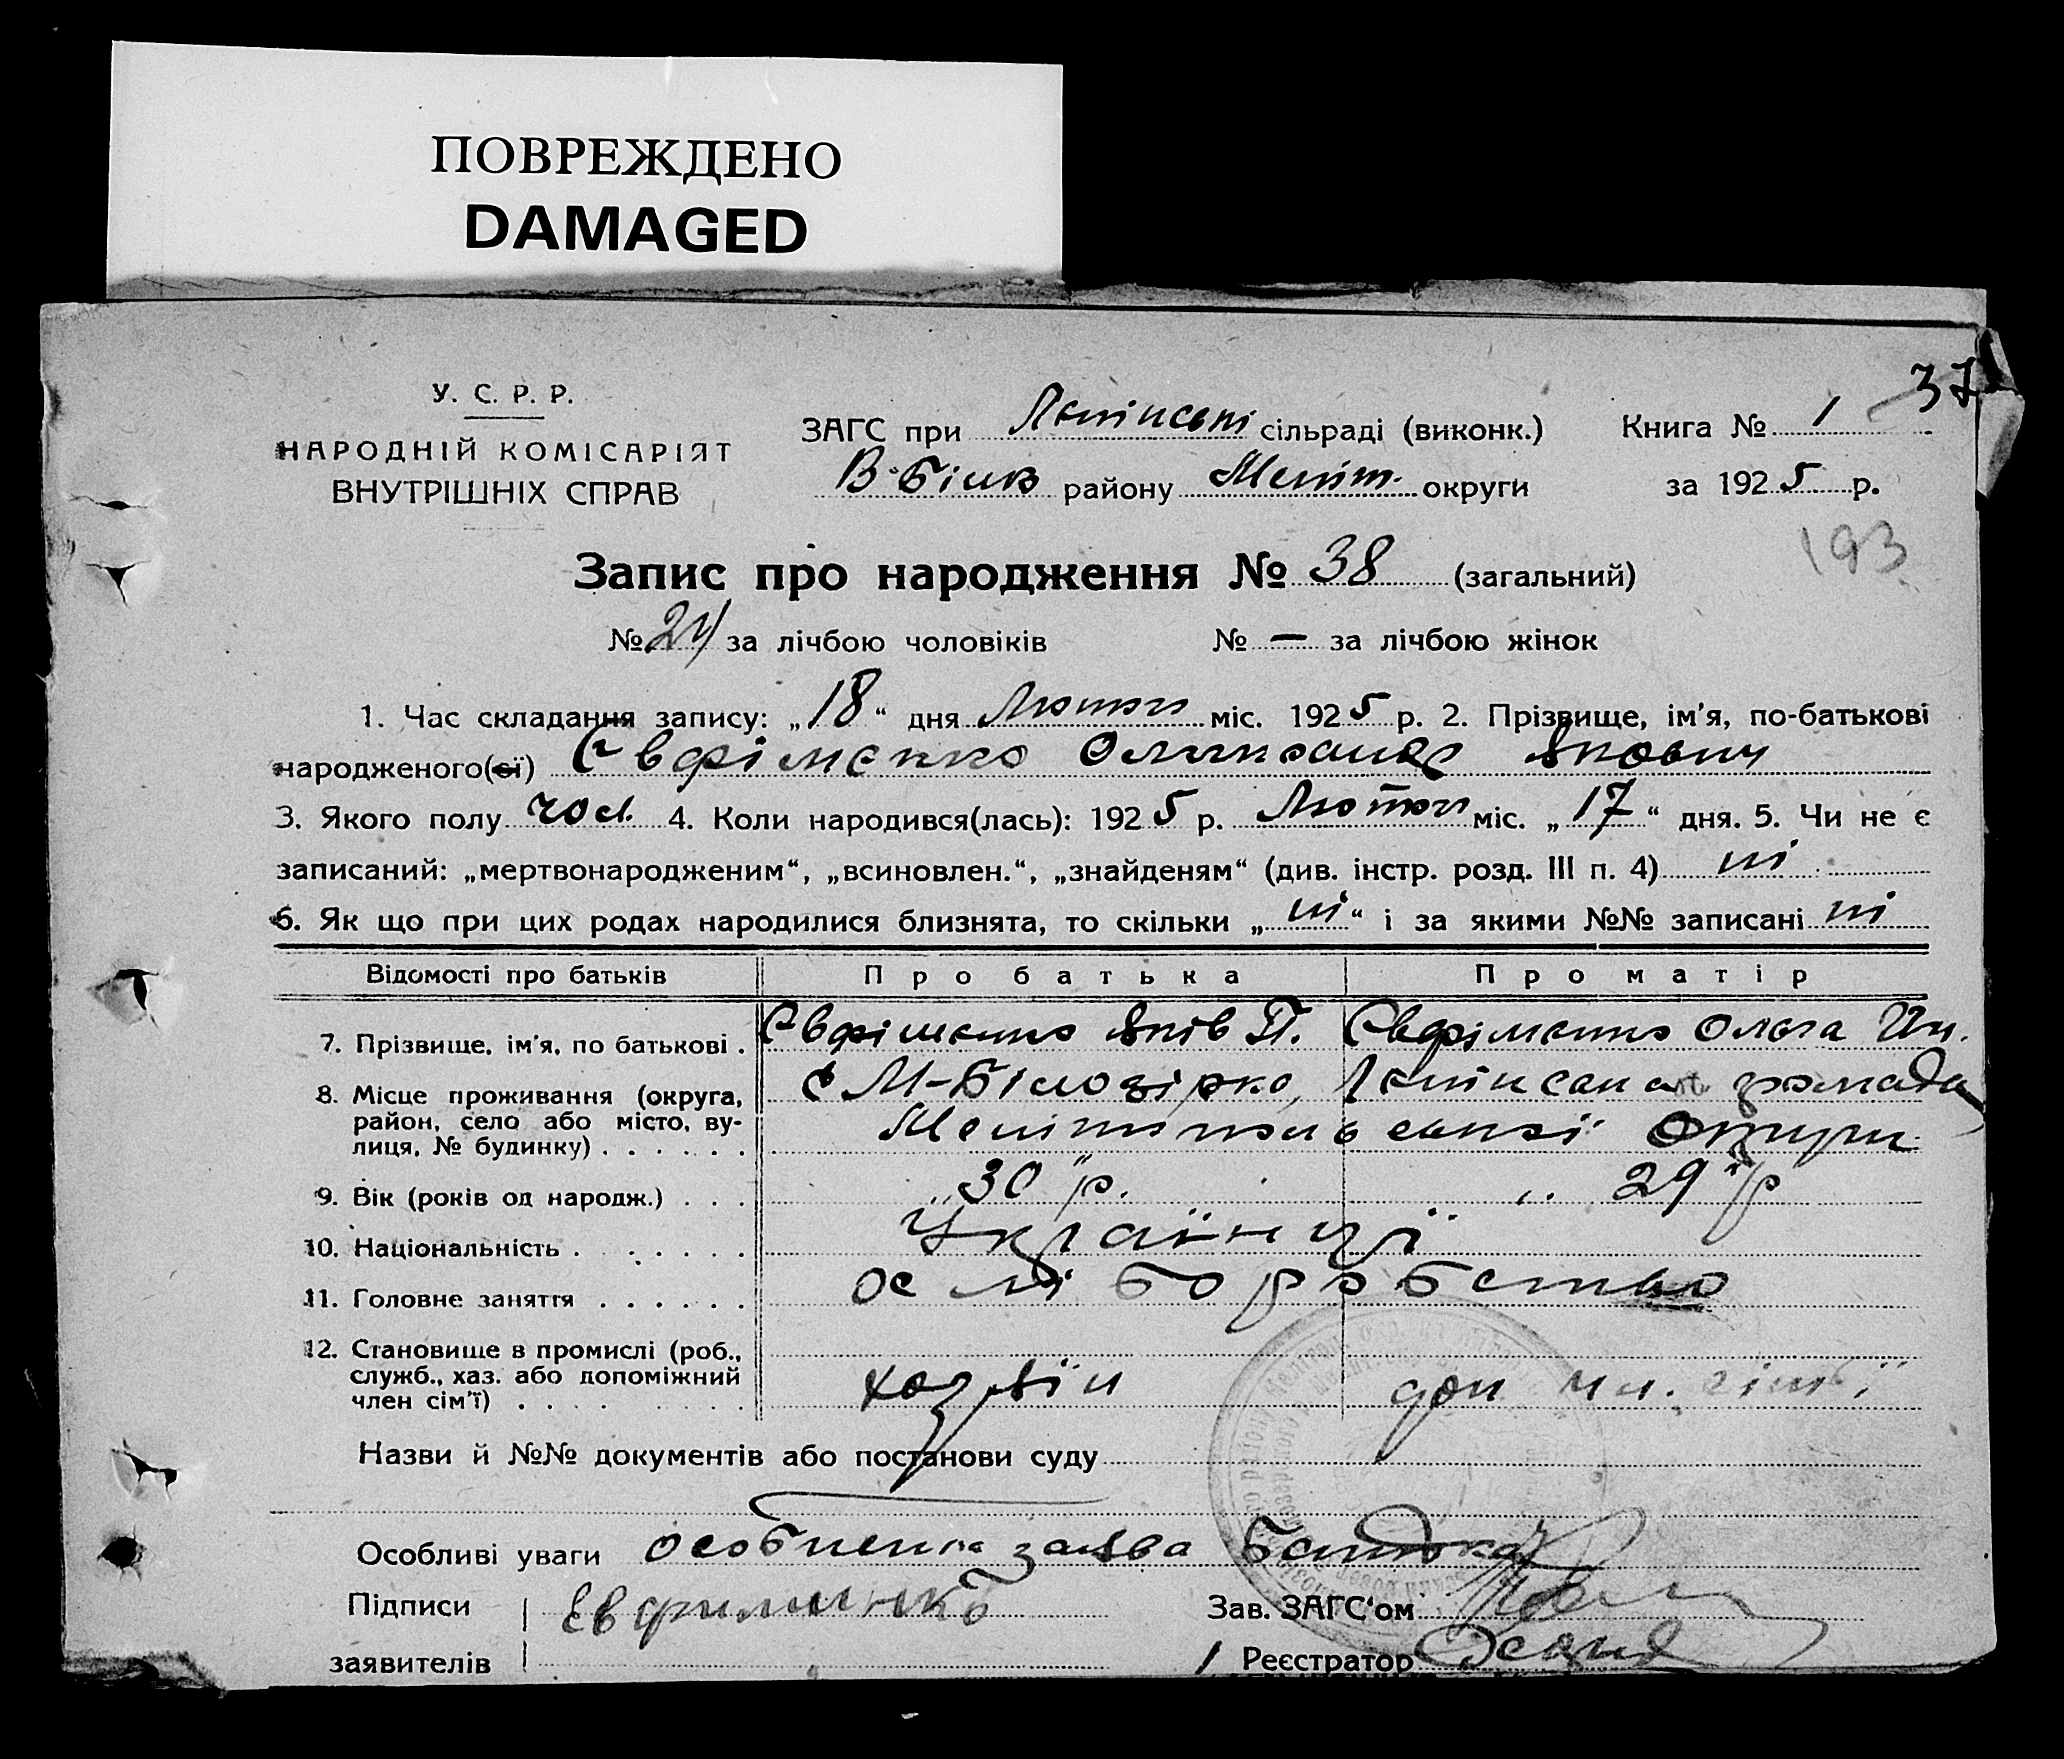 ПОВРЕЖДЕНО
DAMAGED
37
У. С. Р. Р.
НАРОДНІЙ КОМІСАРІЯТ
ВНУТРІШНІХ СПРАВ
ЗАГС при сільраді (виконк.) Книга № 1
В-Білоз району Меліт. округи за 1925 р.
193
Запис про народження № 38 (загальний)
№ 24 за лічбою чоловіків № — за лічбою жінок
1. Час складання запису: „18“ дня Лютого міс. 1925 р. 2. Прізвище, ім'я, по-батькові
народженого(ої) Євфіменко Олександр Якович
3. Якого полу чол. 4. Коли народився(лась): 1925 р. Лютого міс. „17“ дня. 5. Чи не є
записаний: „мертвонародженим“, „всиновлен.“, „знайденям“ (див. інстр. розд. III п. 4) ні
6. Як що при цих родах народилися близнята, то скільки „ні“ і за якими №№ записані ні
Відомості про батьків Про батька Про матір
7. Прізвище, ім'я, по батькові . Євфіменко Яків П. Євфіменко Ольга Ив.
8. Місце проживання (округа, с М-Білозірка, громада
район, село або місто, ву- Мелітопольської Округи
лиця, № будинку) . . . . . .
9. Вік (років од народж.) . . . „30" р. „ 29" р
10. Національність . . . . . . Українці
11. Головне заняття . . . . . . хліборобство
12. Становище в промислі (роб.,
служб., хаз. або допоміжний хазяїн доп чл. сім'ї
член сім'ї) . . . . . . .
Назви й №№ документів або постанови суду
Особливі уваги особиста заява Батька
Підписи Евфименко Зав. ЗАГС'ом
заявителів Реєстратор